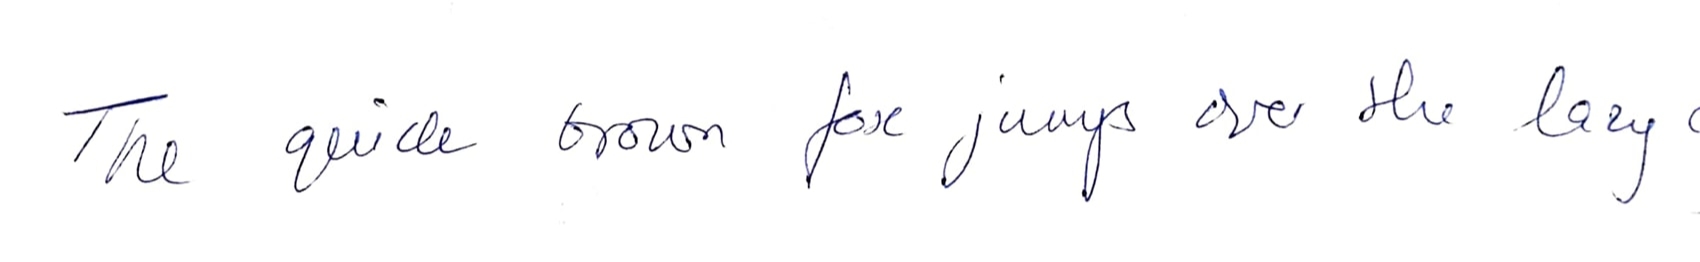 The quick brown fox jumps over the lazy